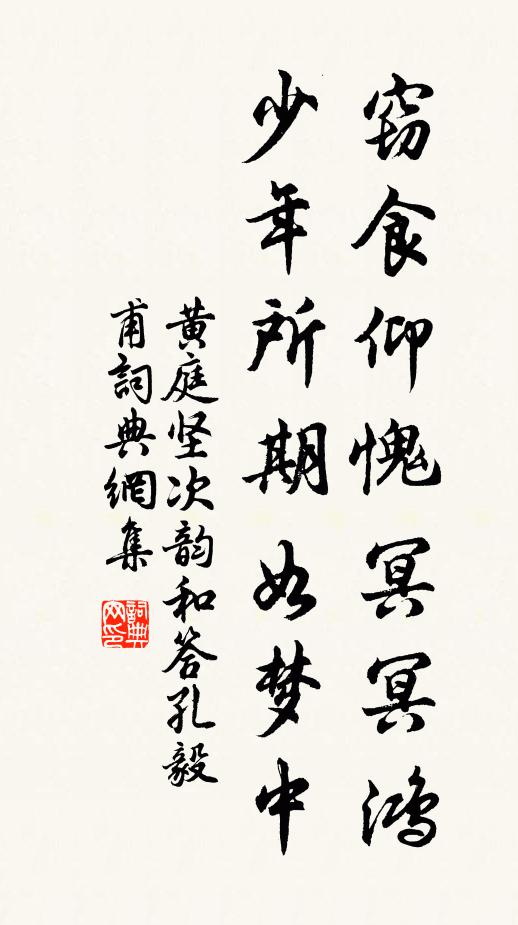 窃食仰愧冥冥鸿
少年所期如梦中
黄庭坚次韵和答孔毅
甫詞典網集
詞典
网印